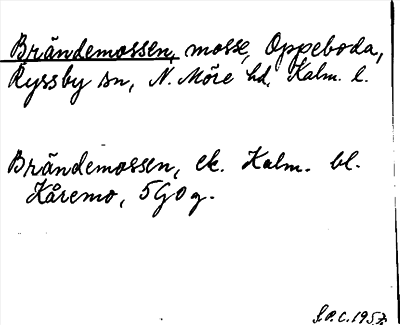 Brändemossen, mosse, Oppeboda,
Ryssby sn, N. Möre hd, Kalm. l.
Brändemossen, ek. Kalm. bl.
Kåremo, 5G0g.
S.P.C. 1957.